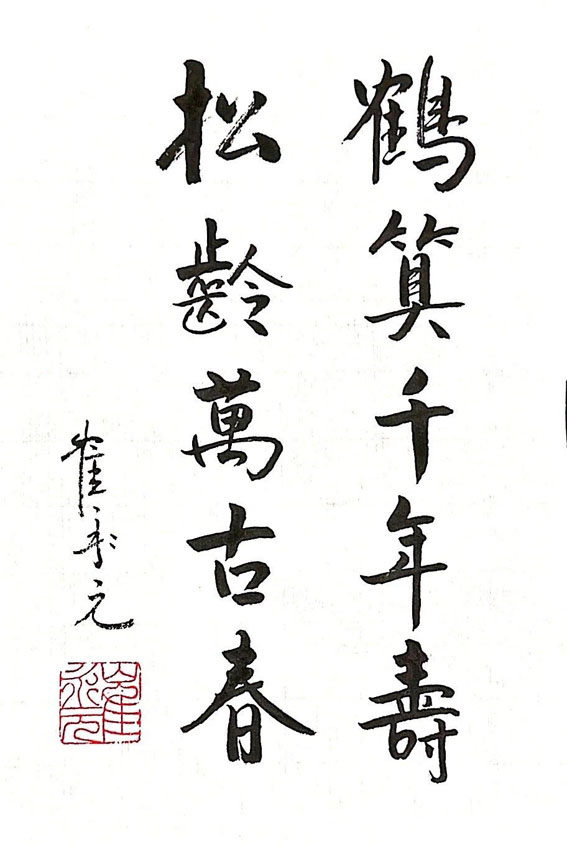 鶴算千年壽
松齡萬古春
崔彩元